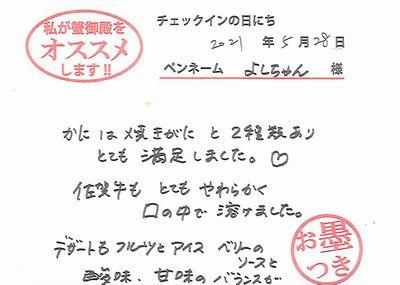 私が蟹御殿を
オススメ
します!!
チェックインの日にち
2021 年 5 月 28 日
ペンネーム よしちゃん 様
かには焼きがにと2種類あり
とても満足しました。♡
佐賀牛もとてもやわらかく
口の中で溶けました。
デザートもフルーツとアイス ベリーの
ソースと
酸味、甘味のバランスが
お墨
つき